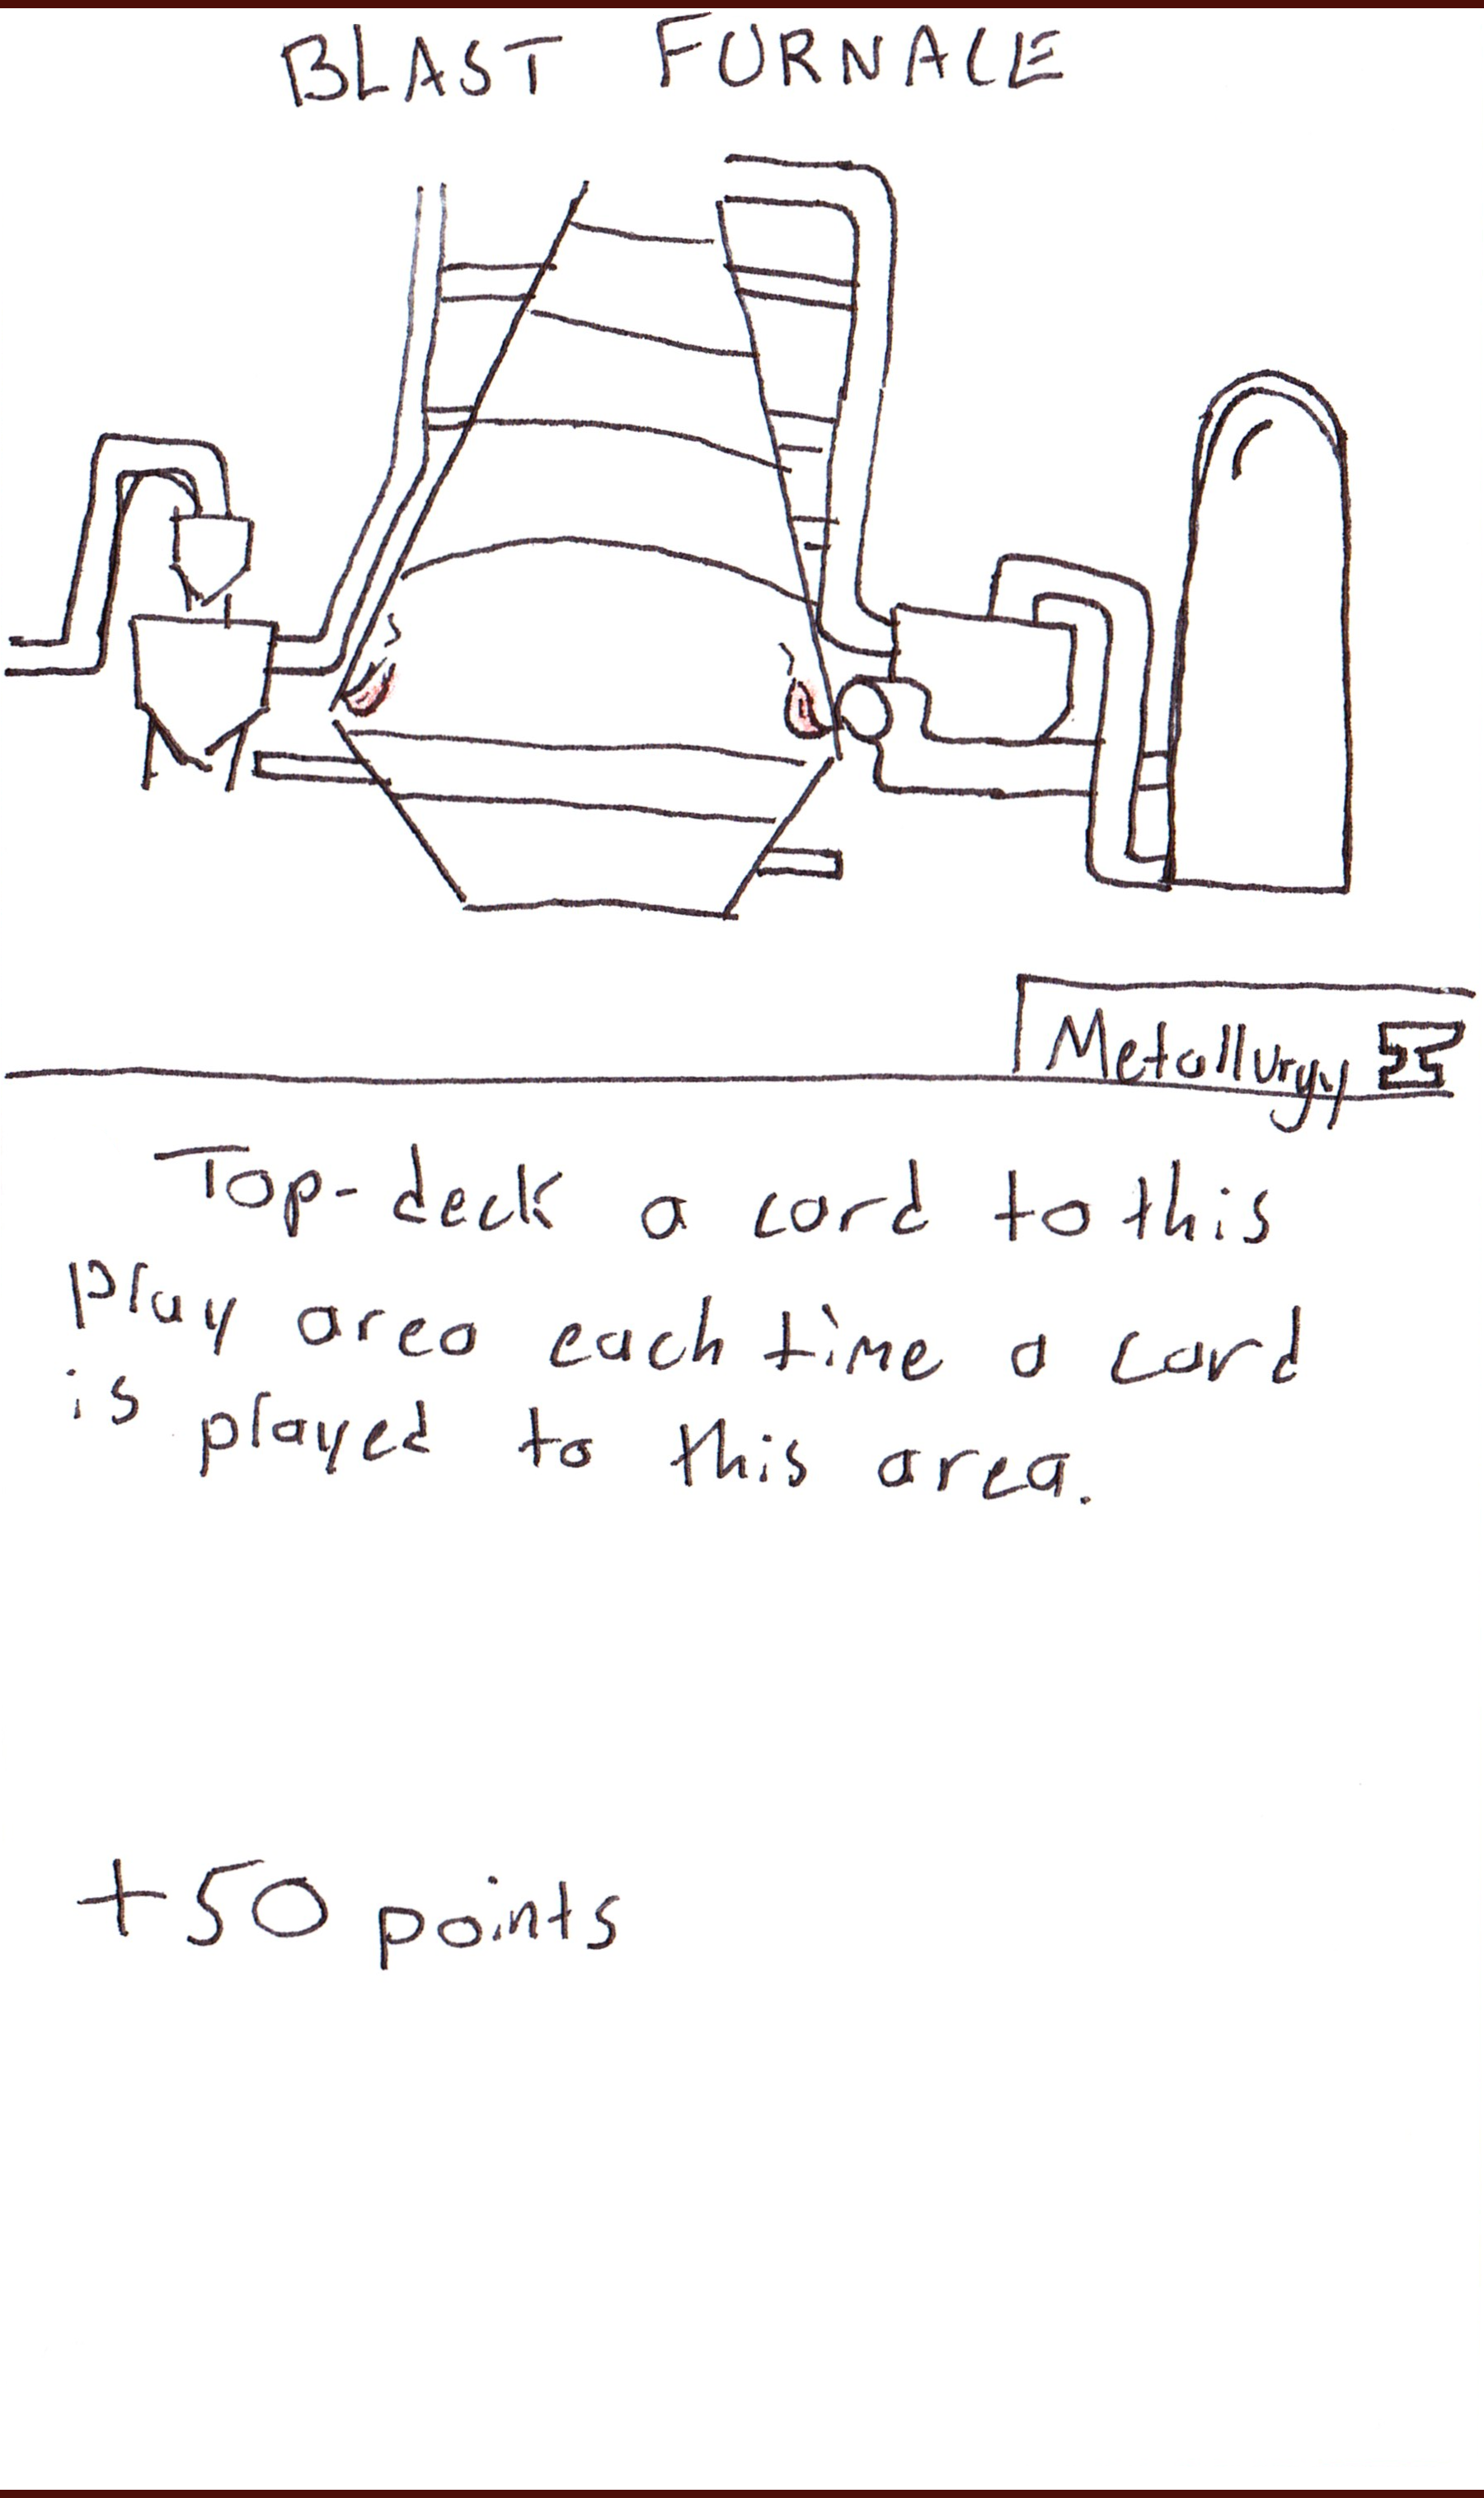 BLAST FURNACE
Metallurgy
Top-deck a card to this
play area each time a card
is played to this area.
+50 points